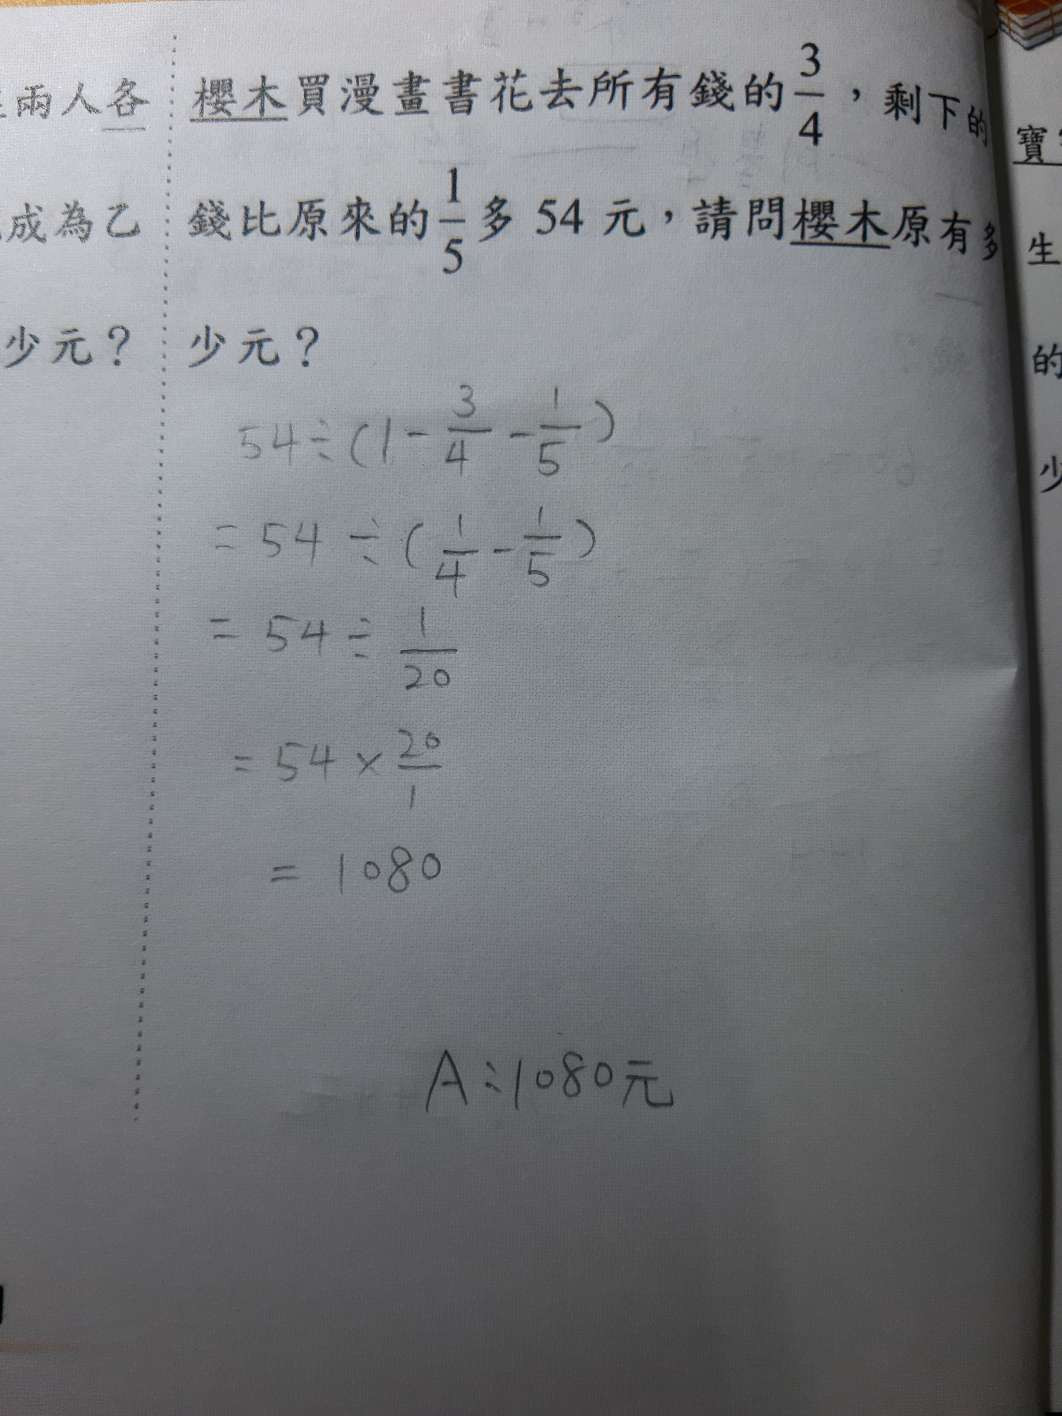 兩人各
成為乙
少元？
櫻木買漫畫書花去所有錢的3/4，剩下的
錢比原來的1/5多 54 元，請問櫻木原有多
少元？
54÷(1-3/4-1/5)
=54÷(1/4-1/5)
=54÷1/20
=54×20/1
=1080
A:1080元
寶
生
的
少